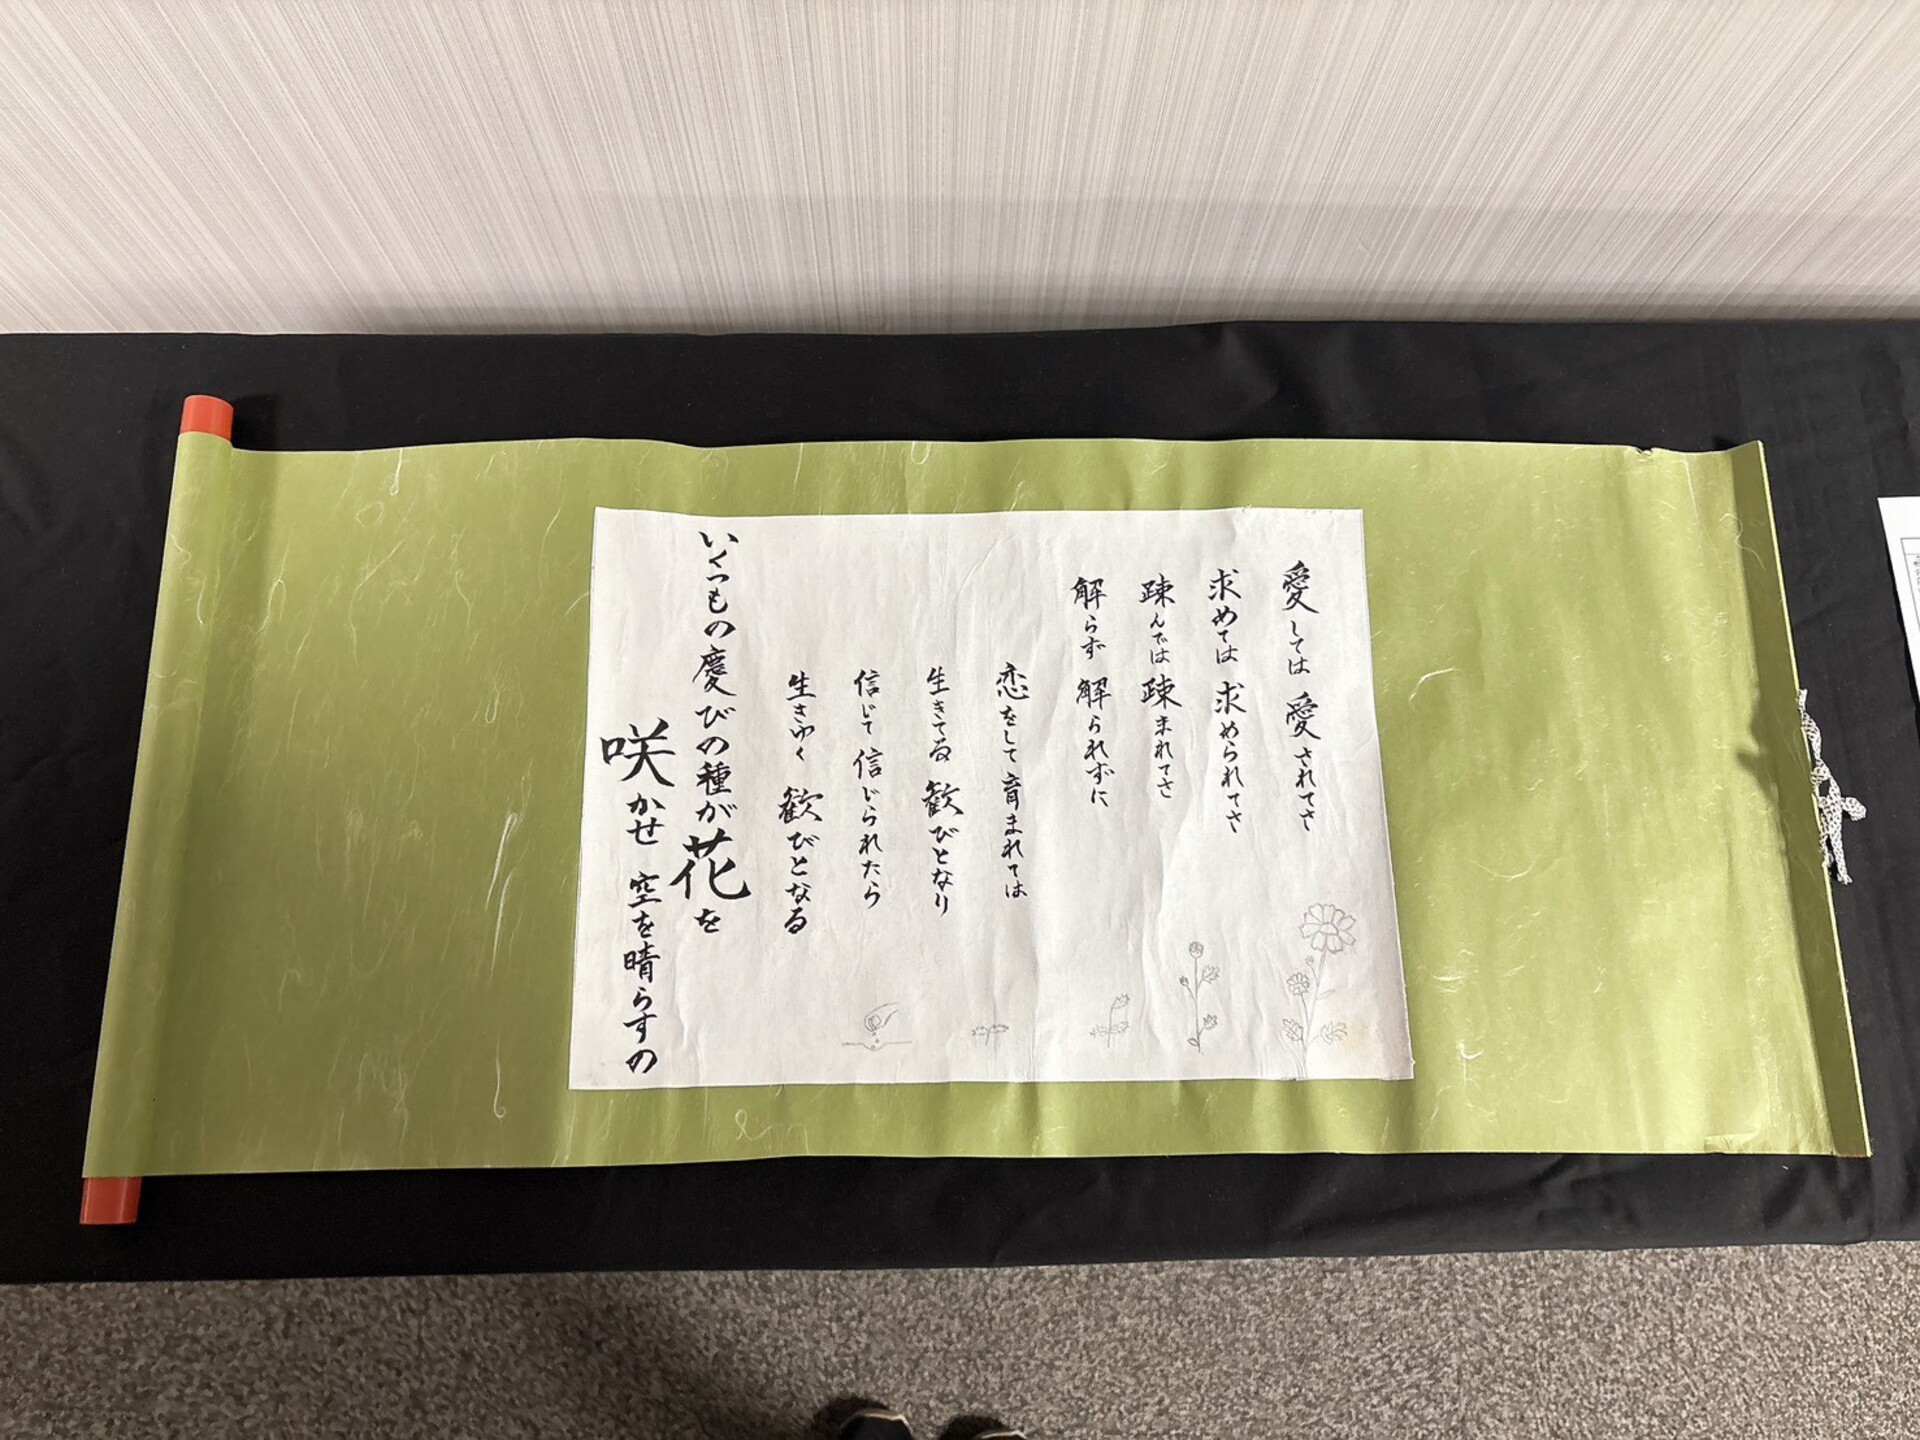 愛しては 愛されてさ
求めては 求められてさ
疎んでは 疎まれてさ
解らず 解られずに
恋をして 育まれては
生きてる 歓びとなり
信じて 信じられたら
生きゆく 歓びとなる
いくつもの慶びの種が花を
咲かせ 空を晴らすの